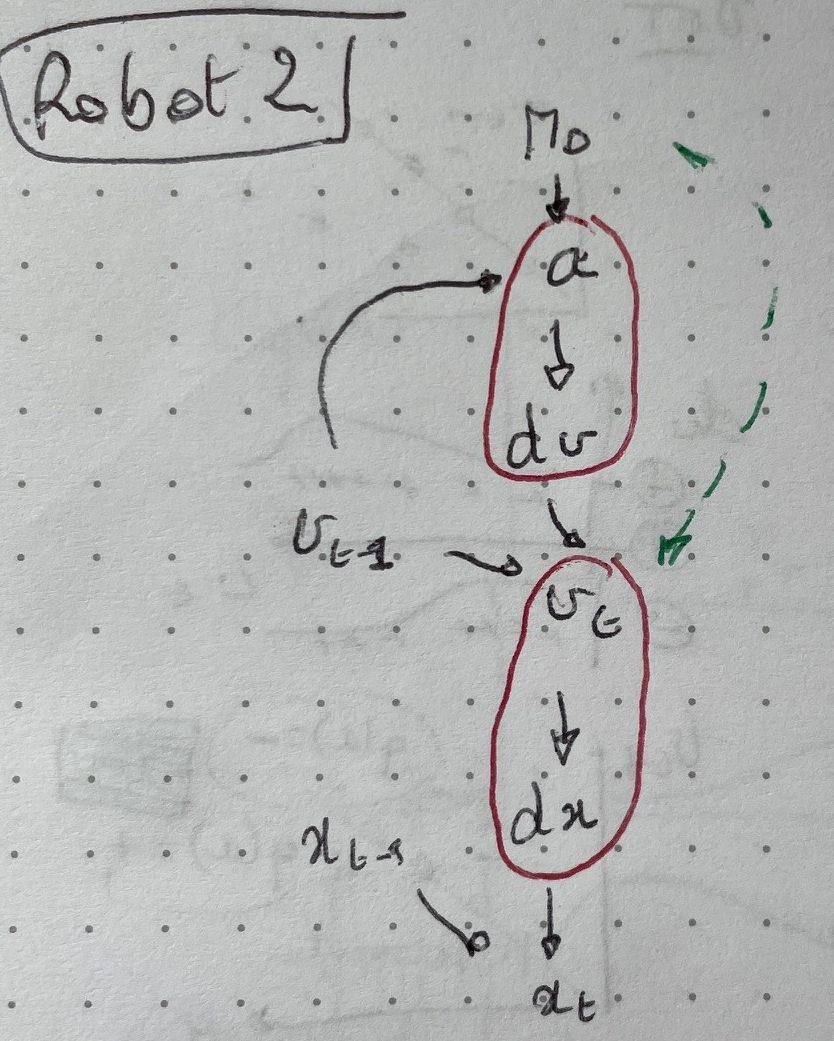 Robot 2
Mo
a
dv
v t-1
v t
dx
x t-1
x t